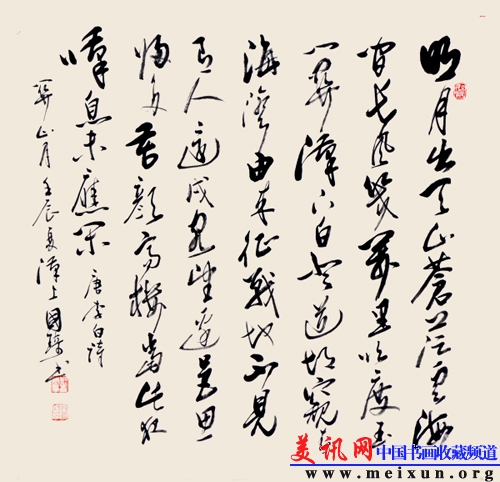 明月出天山蒼茫雲海
間長風幾萬里吹度玉
門關漢下白登道胡窺青
海灣由來征戰地不見
有人還戍客望邊邑思
歸多苦顏高樓當此夜
嘆息未應閑 唐李白詩
關山月 壬辰夏漢上國 書
美讯网 中国书画收藏频道
www.meixun.org